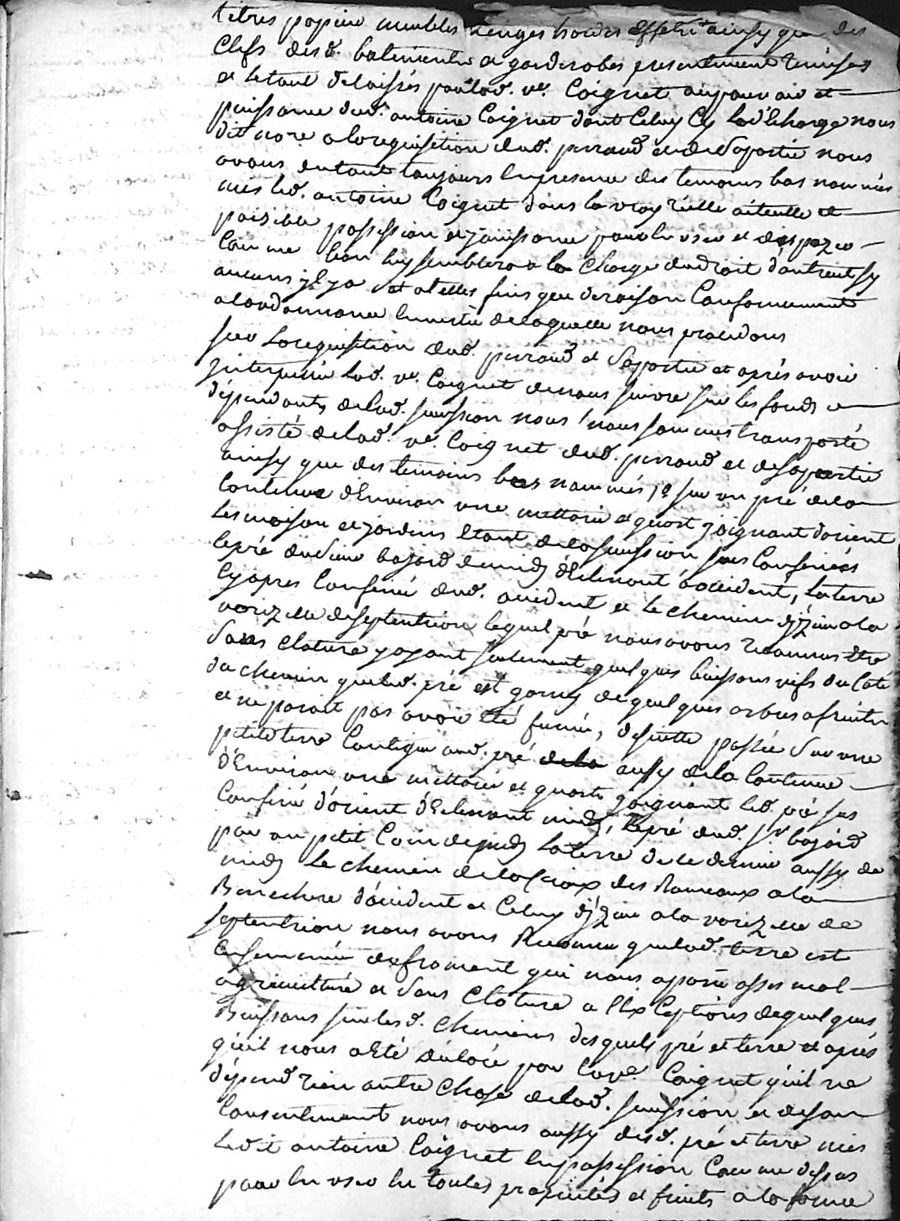 titres papiers meubles linges hardes effets ainsy que des
Clefs desd. batiments et garderobes presentement remises
et le tout delaissés par lad. ve. Coignet au pouvoir et
puissance dud. antoine Coignet dont Celuy Cy lad. Charge nous
dit not.re a la requisition dud. perraud de sa partie nous
avons entant toujours En presence des temoins bas nommés
mis led. antoine Coignet dans la vray réelle actuelle et
paisible possession et jouissance pour en user et disposer
Comme bon luy semblera a la Charge du droit d'autruy sy
aucuns il y a et a telles fins que de raison Conformement
a lordonnance En vertu de laquelle nous procedons
sur La requisition dud. perraud et sa partie et après avoir
Interpellé lad. ve. Coignet de nous suivre sur les fonds
dépendants de lad. succession nous nous sommes transporté
assisté de lad. ve. Coignet dud. perraud et de sa partie
ainsy que des temoins bas nommés, 1° sur un pré de la
Contenue d'Environ une mettarie et quart joignant d'orient
Les maison et jardins Etant de la succession sus Confinés
le pré du sieur bajard de midy déclinant a occident, la terre
Cy après Confiné dud. occident et Le chemin
de septentrion lequel pré nous avons reconnus être
sans cloture y ayant seulement quelques buissons vifs du Coté
du chemin que led. pré est garny de quelques arbres fruitiers
et ne paroit pas avoir été fumé, desuitte passée sur une
petite terre Contigue aud. pré aussy de la Contenue
d'Environ une mettarée et quarte joignant led. pré sus
Confiné d'orient déclinant midy, le pré dud. sr. bajard
par un petit Coin de midy La terre de ce dernier aussy de
midy Le chemin de la Croix des Rameaux a la
d'occident et Celuy de
septentrion nous avons Reconnu que lad. terre est
Ensemencée de froment qui nous a paru asses mal
agricultée et sans Cloture a lExCeption de quelques
Buissons sur lesd. Chemins desquels pré et terre et après
qu'il nous a Eté déclaré par lad. ve. Coignet qu'il ne
dépend rien autre Chose de lad. succession et de son
Consentement nous avons aussy desd. pré et terre mis
Ledit antoine Coignet En possession Comme dessus
pour En user En toutes proprietés et fruits a la forme